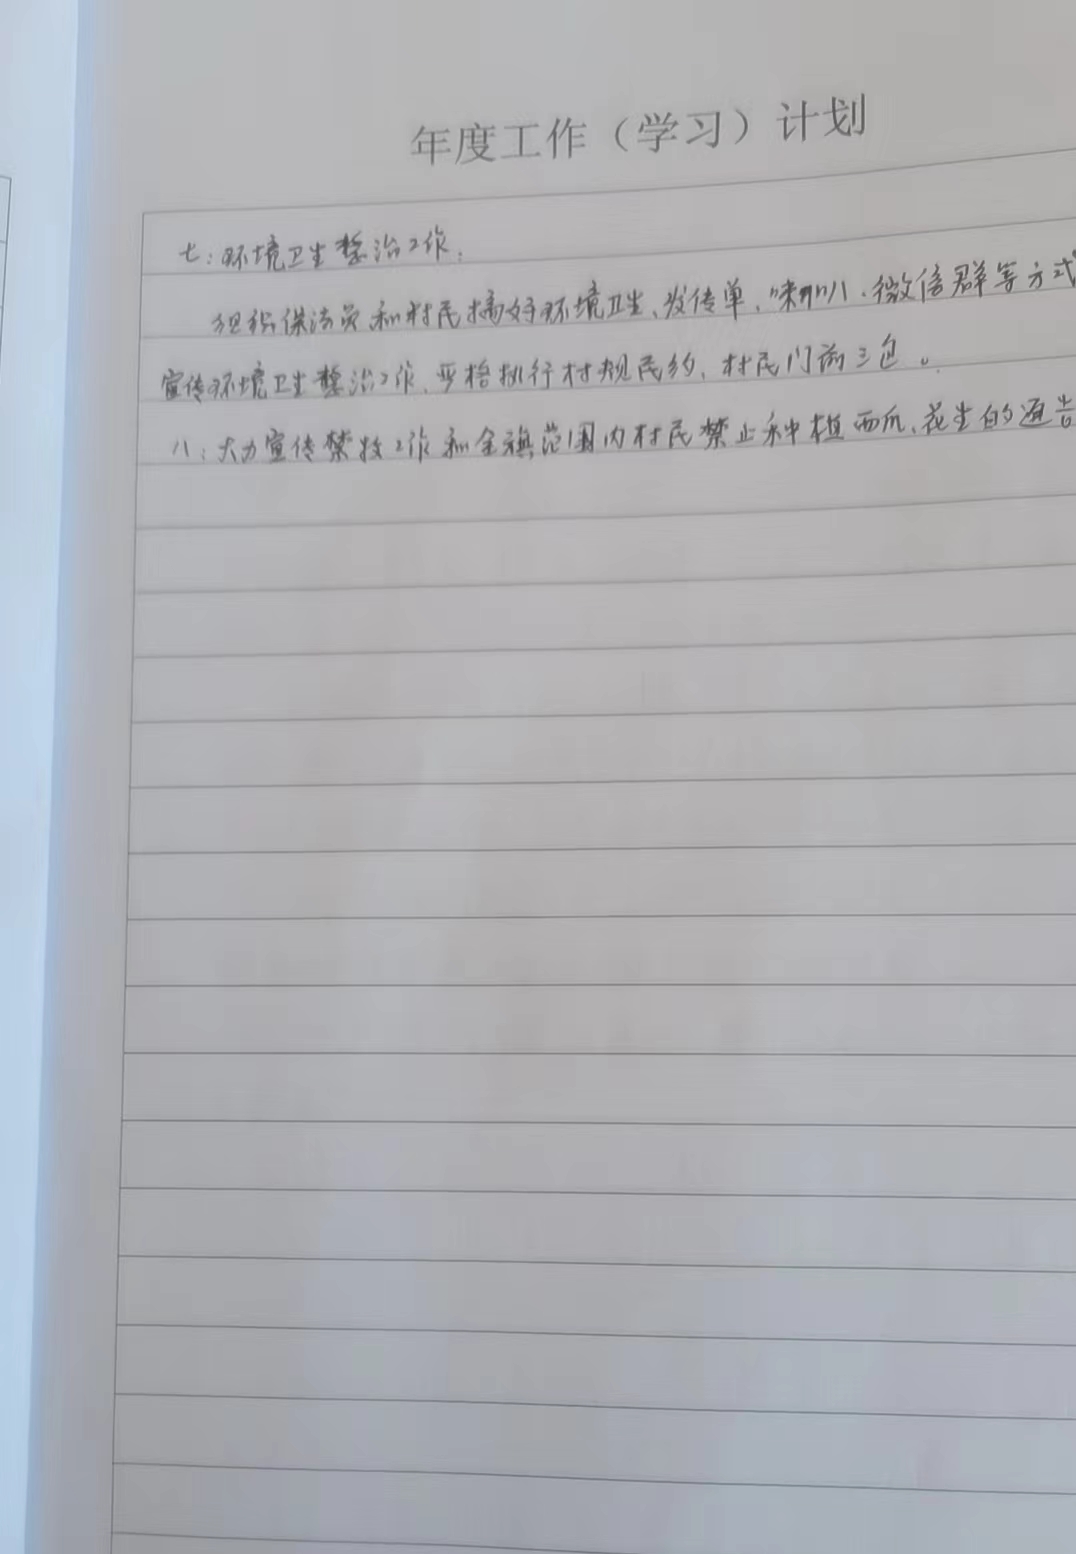 年度工作（学习）计划
七：环境卫生整治工作：
组织保洁员和村民搞好环境卫生、发传单、喇叭、微信群等方式
宣传环境卫生整治工作、严格执行村规民约，村民门前三包。
八：大力宣传禁牧工作和全旗范围内村民禁止种植西瓜、花生的通告